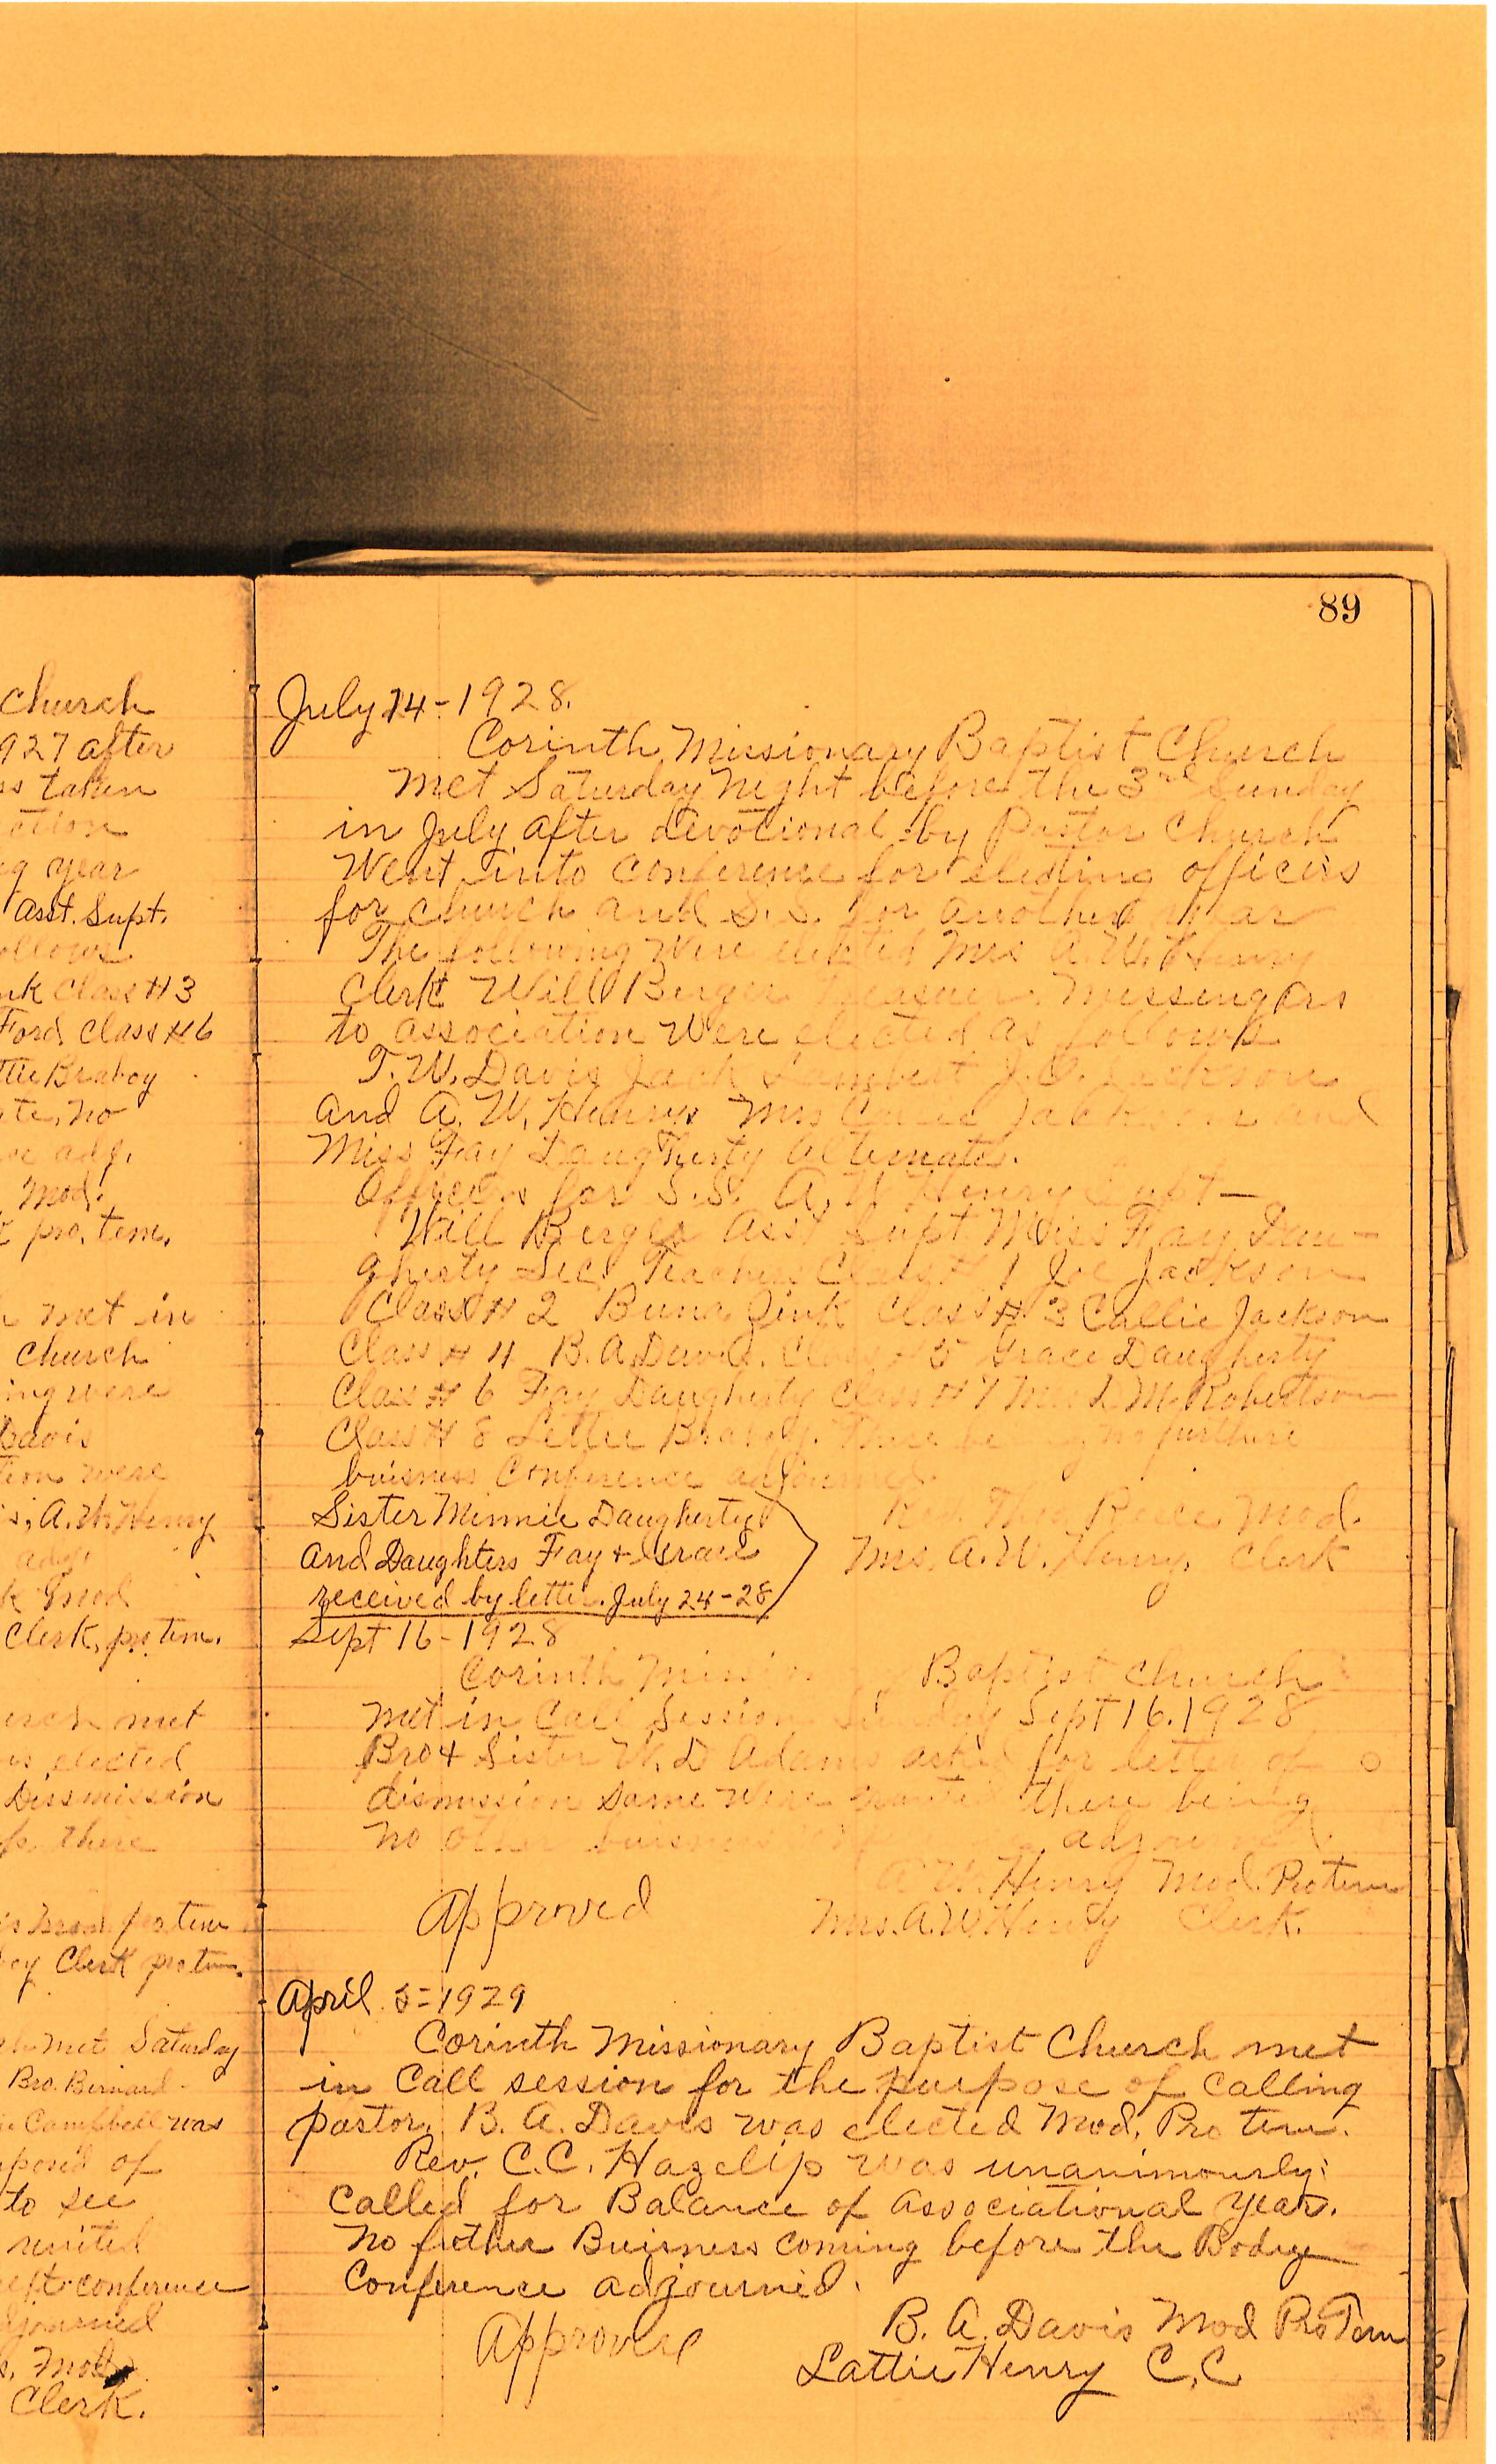 church
927 after
ss taken
otion
year
Asst. Supt.
ollows
nk Class # 3
Ford Class # 6
ttie Braboy
te, no
adj.
Mod.
pro. tem.
met in
Church
ing were
Davis
tion were
A. W. Henry
adj.
Mod
Clerk, pro tem.
urch met
is elected
Dissmission
there
Mod pro tem
oy Clerk pro tem.
h met Saturday
Bro. Bernard
Campbell was
posed of
to see
united
conference
djourned
Mod.
Clerk.
89
July 14-1928.
Corinth Missionary Baptist Church
Met Saturday Night before the 3rd Sunday
in July after devotional by Pastor Church
Went into Conference for electing officers
for church and S.S. for another year
The following were elected Mrs A. W. Henry
Clerk Will Berger Messengers
to association were elected as follows
T. W. Davis Jack Lambert J. O. Jackson
and A. W. Henry Mrs Callie Jackson and
Miss Fay Daugherty Alternates.
Officers for S.S. A. W. Henry Supt-
Will Berger Asst Supt Miss Fay Dau-
gherty Sec. Teacher Class # 1 Joe Jackson
Class # 2 Buna Zink Class # 3 Callie Jackson
Class # 4 B. A. Davis. Class # 5 Grace Daugherty
Class # 6 Fay Daugherty Class # 7 D M Robertson
Class # 8 Lettie Braboy. There being no furthure
buisness Conference adjourned.
Sister Minnie Daugherty
and Daughters Fay + Grace
received by letter. July 24-28
Reece Mod.
Mrs. A. W. Henry, Clerk
Sept 16-1928
Corinth Missionary Baptist Church
Met in Call Session Sunday Sept 16. 1928
Bro + Sister W. D Adams asked for letter of
dismission Same were granted there being
no other buisness adjourned.
A W. Henry Mod. Protem
Mrs. A. W Henry Clerk.
Approved
April 5=1929
Corinth Missionary Baptist Church met
in Call session for the purpose of calling
pastor. B. A. Davis was elected Mod. Pro tem.
Rev. C.C. Hazelip was unanimously
called for Balance of Associational year.
No futher Buisness coming before the Body
Conference adjourned.
B. A. Davis Mod Pro Tem
Approved
Lattie Henry C.C